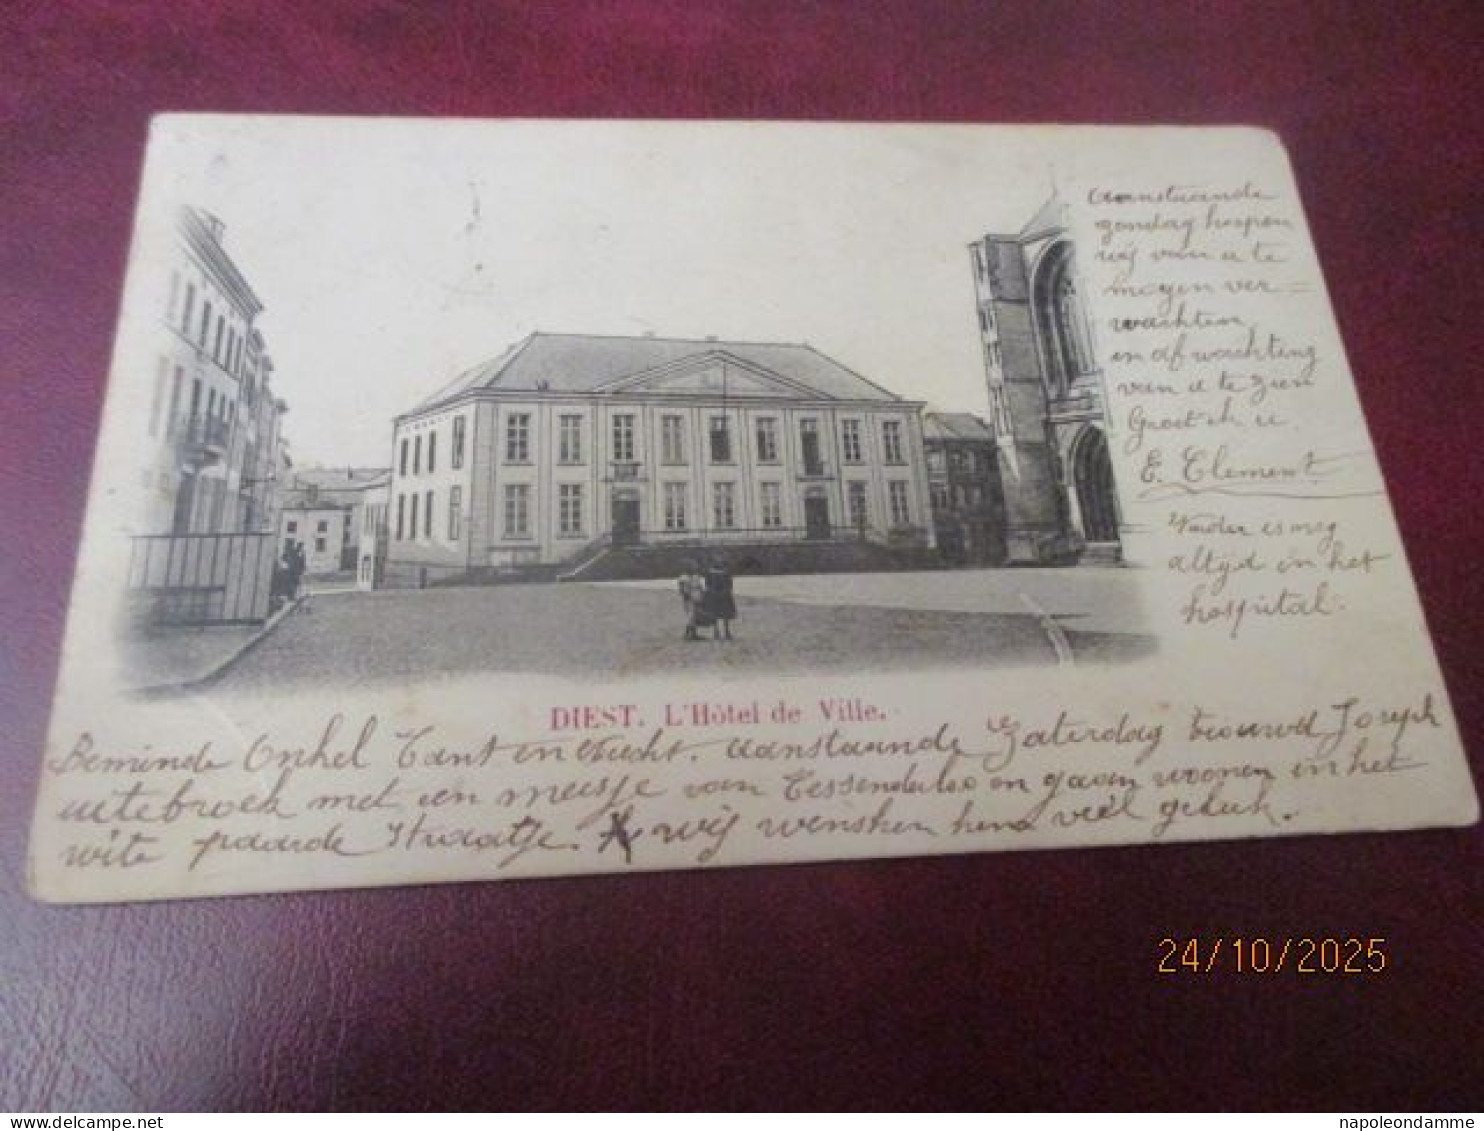 aanstaande
zondag hopen
wij van u te
mogen ver=
wachten,
in afwachting
van u te zien
Groet ik u
E. Clement
Vader is nog
altyd in het
hospital.
DIEST. L'Hôtel de Ville.
Beminde Onkel Tant en Nicht. aanstaande Zaterdag trouwd Joseph
uitebroek met een meisje van Tessenderloo en gaan woonen in het
wite paarde Straatje. wij wenschen hen veel geluk.
24/10/2025
napoleondamme